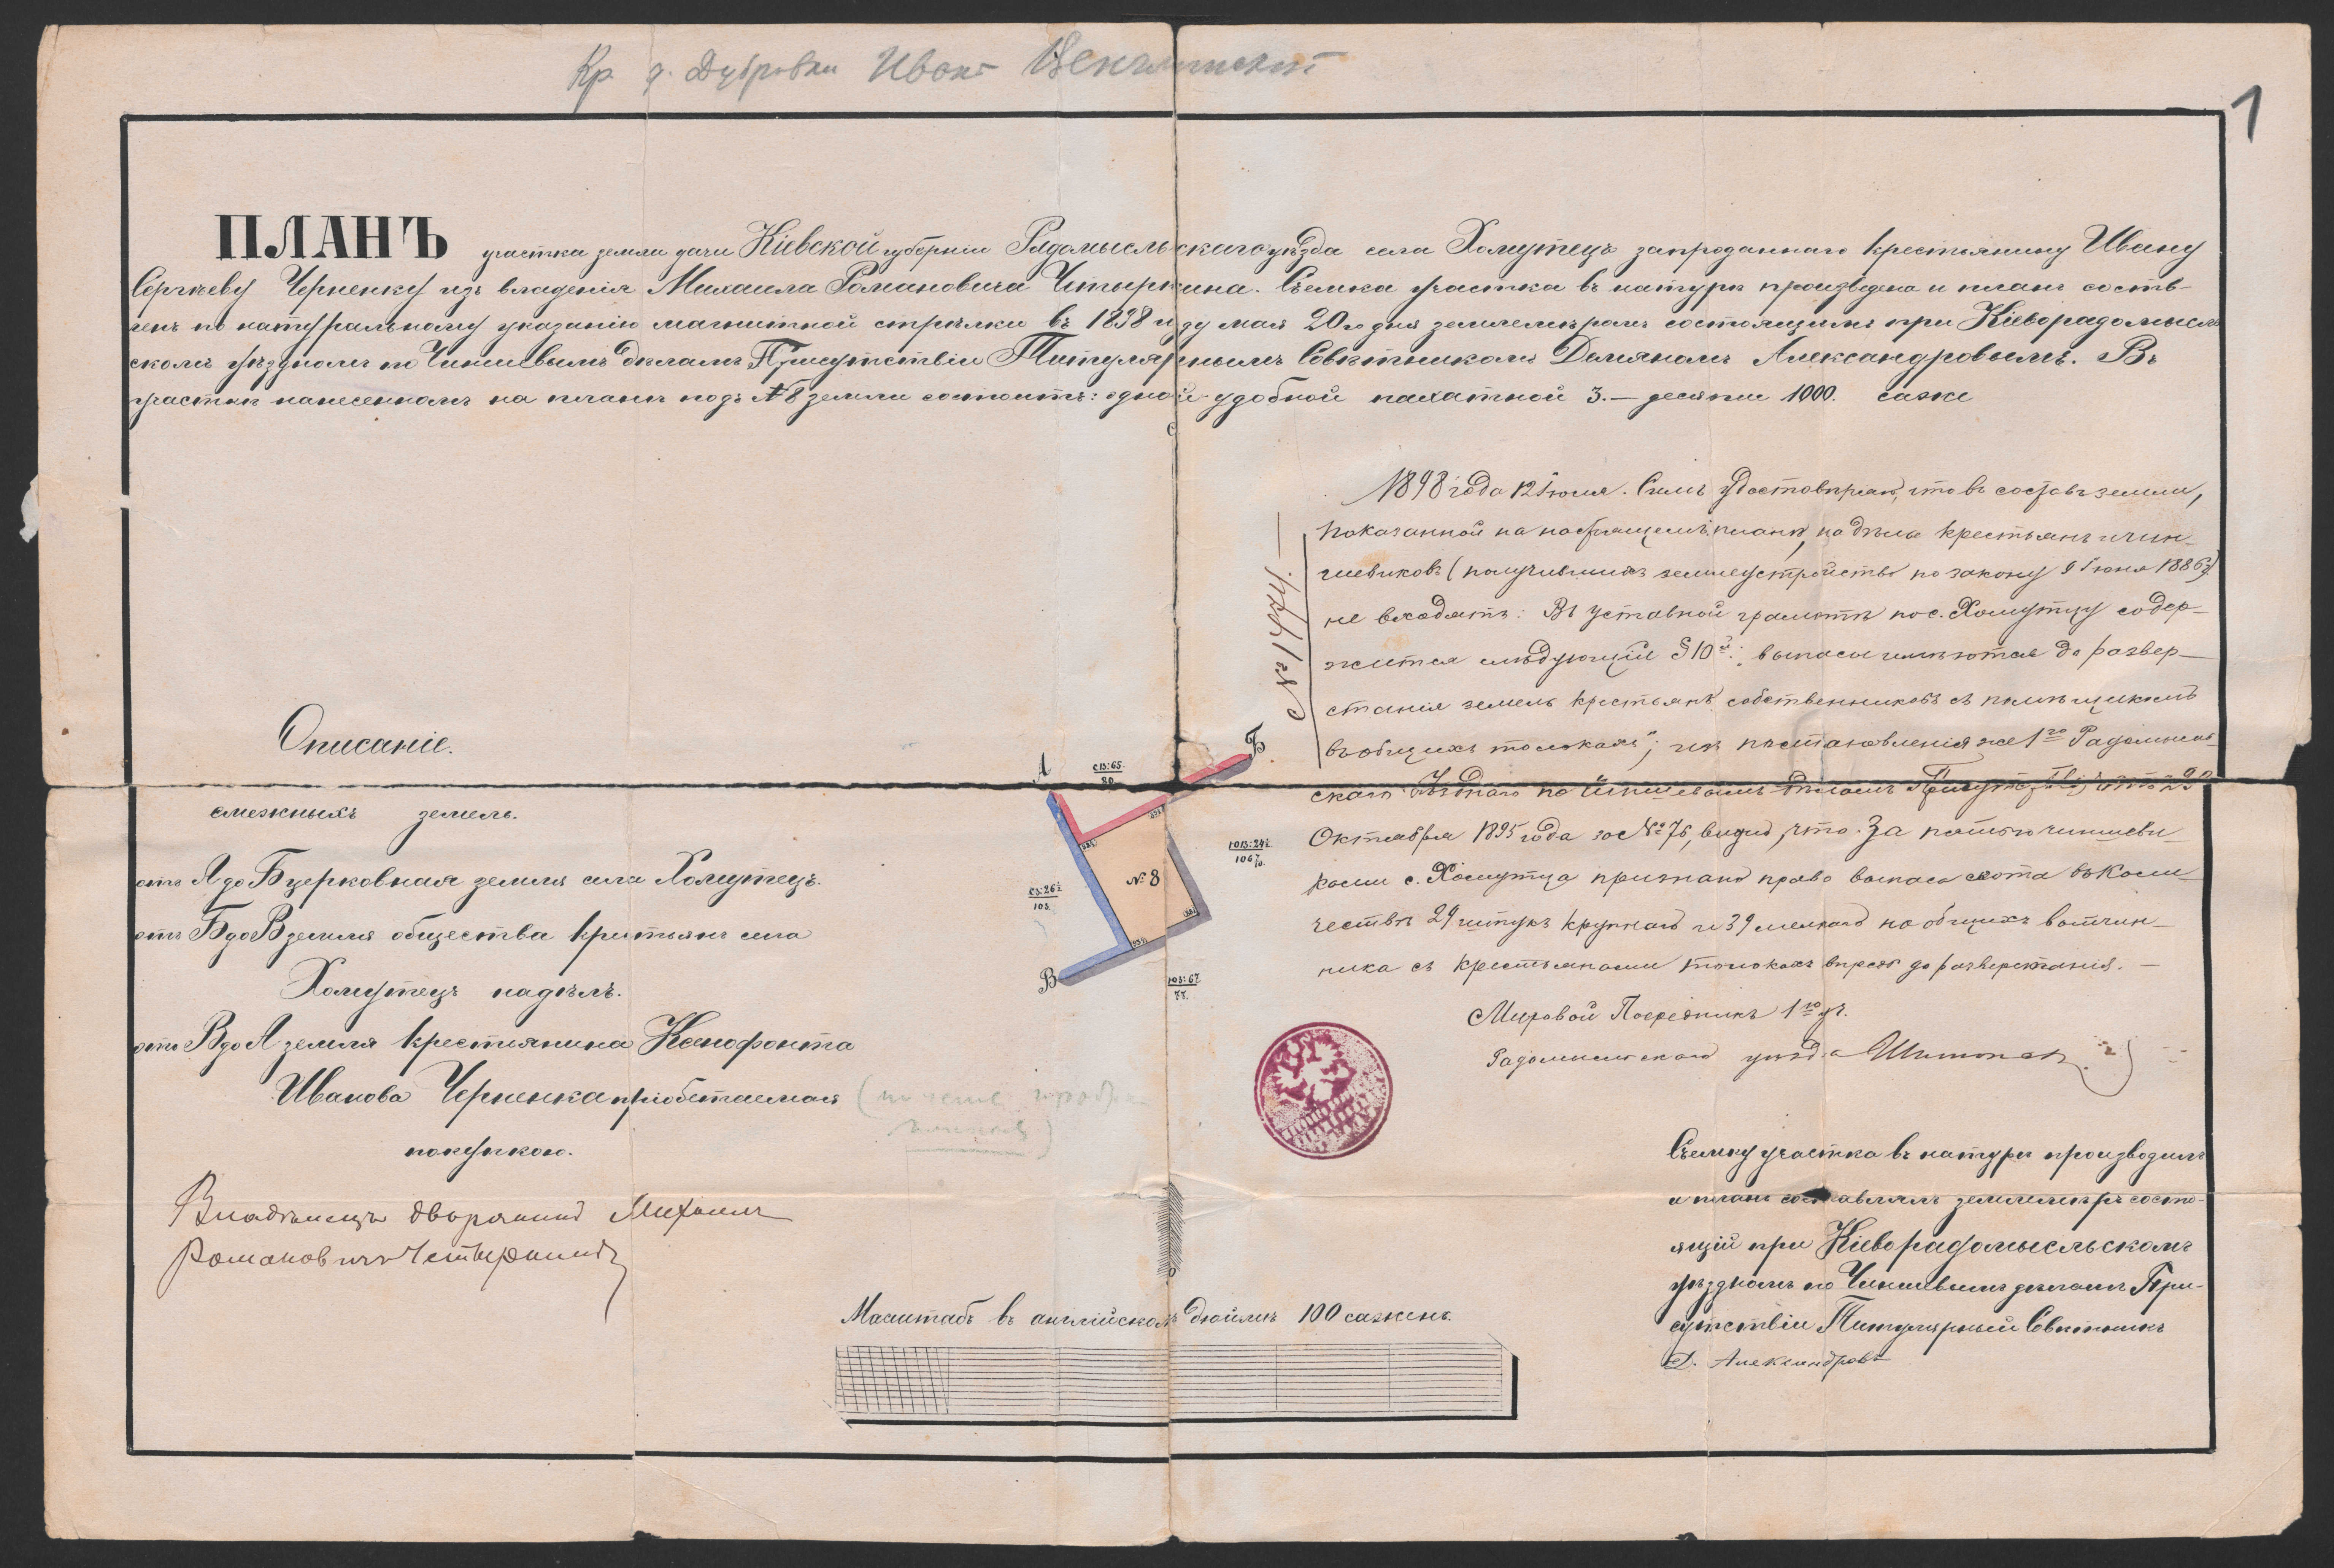 Кр. д. Дубровки Иванъ
1
ПЛАНЪ участка земли дачи Кіевской губерніи Радомысльскаго уѣзда села Хомутець запроданнаго крестьянину Ивану
Сергѣеву Черненку изъ владенія Михаила Романовича Четыркина. Съемка участка въ натурѣ произведена и планъ состав-
ленъ по натуральному указанію магнитной стрѣлки въ 1898 году мая 20го дня землемѣромъ состоящимъ при Кіеворадомысль
скомъ уѣздномъ по Чиншевымъ дѣламъ Присутствіи Титулярнымъ Совѣтникомъ Демяномъ Александровымъ. Въ
участкѣ нанесенномъ на планѣ подъ №8 земли состоитъ: одной удобной пахатной 3.— десятин 1000. саже
С
1898 года 12 Іюля. Симъ удостовѣряю, что въ составъ земли,
показанной на настоящемъ планѣ, надѣлы крестьянъ и чин-
шевиковъ (получившихъ землеустройство по закону 9 Іюня 1886 г)
не входятъ: Въ уставной грамотѣ по с. Хомутцу содер-
жится слѣдующій §10й: выпасы имѣются до развер-
станія земель крестьянъ собственниковъ съ помѣщикомъ
въ общихъ толокахъ"; изъ постановленія же 1го Радомысль-
скаго Уѣзднаго по Чиншевымъ дѣламъ Присутствія, отъ 29
Октября 1895 года за №76, видно, что за пятью чиншеви-
ками с. Хомутца признано право выпаса скота въ коли-
чествѣ 29 штукъ крупнаго и 39 мелкаго на общихъ вотчин-
ника съ крестьянами толокахъ впредь до разверстанія. —
Мировой Посредникъ 1го уч.
Радомысльскаго уѣзда
№ 1474.
Описаніе.
смежныхъ земель.
отъ А до Б церковная земля села Хомутець.
отъ Б до В земля общества крестьянъ села
Хомутець надѣлъ.
отъ В до А земля крестянина Ксенофонта
Иванова Черненка пріобѣтаемая
покупкою.
Владѣлецъ дворянинъ Михаилъ
Романовичъ Четыркинъ
А
Б
В
СВ:65.
80.
ЮВ:24½
106
СЗ:26½
103.
ЮЗ:67.
77.
№8
Съемку участка въ натурѣ производилъ
и планъ составлялъ землемѣръ состо-
ящій при Кіеворадомысльскомъ
уѣздномъ по Чиншевымъ дѣламъ При-
сутствіи Титулярный Совѣтникъ
Д. Александровъ
Ю
Масштабъ въ англійскомъ дюймѣ 100 сажень.